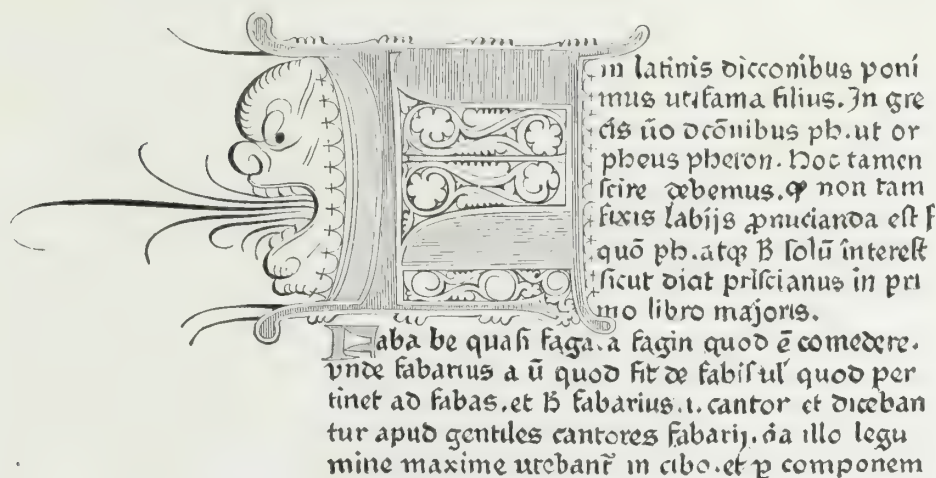 F in latinis dicconibus poni
mus ut fama filius. In gre
cis ũo dcōnibus ph. ut or
pheus pheron. Hoc tamen
scire debemus. ꝙ non tam
fixis labijs ꝓnucianda est f
quō ph. atqꝫ solū interest
sicut dicit priscianus in pri
mo libro majoris.
Faba be quasi faga. a fagin quod ē comedere.
vnde fabarius a ū quod fit de fabis ul' quod per
tinet ad fabas. et fabarius .i. cantor et diceban
tur apud gentiles cantores fabarij. illo legu
mine maxime utebant̃ in cibo. et ꝑ componem